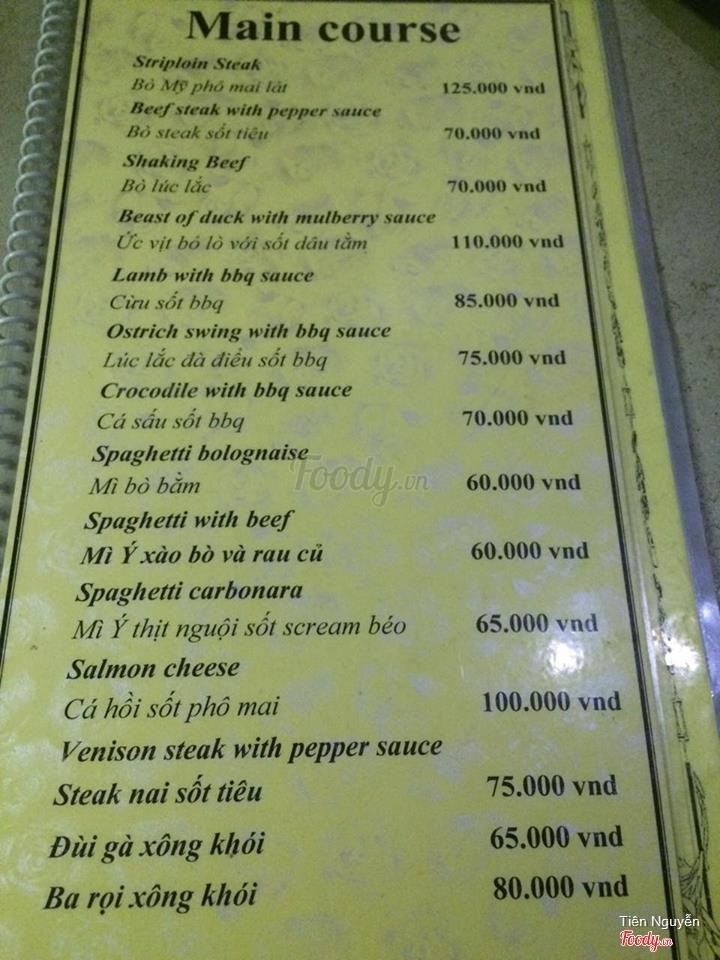 Main course
Striploin Steak
Bò Mỹ phô mai lát 125.000 vnd
Beef steak with pepper sauce
Bò steak sốt tiêu 70.000 vnd
Shaking Beef
Bò lúc lắc 70.000 vnd
Beast of duck with mulberry sauce
Ức vịt bỏ lò với sốt dâu tằm 110.000 vnd
Lamb with bbq sauce
Cừu sốt bbq 85.000 vnd
Ostrich swing with bbq sauce
Lúc lắc đà điểu sốt bbq 75.000 vnd
Crocodile with bbq sauce
Cá sấu sốt bbq 70.000 vnd
Spaghetti bolognaise
Mì bò bằm 60.000 vnd
Spaghetti with beef
Mì Ý xào bò và rau củ 60.000 vnd
Spaghetti carbonara
Mì Ý thịt nguội sốt scream béo 65.000 vnd
Salmon cheese
Cá hồi sốt phô mai 100.000 vnd
Venison steak with pepper sauce
Steak nai sốt tiêu 75.000 vnd
Đùi gà xông khói 65.000 vnd
Ba rọi xông khói 80.000 vnd
Foody.vn
Tiên Nguyễn
Foody.vn